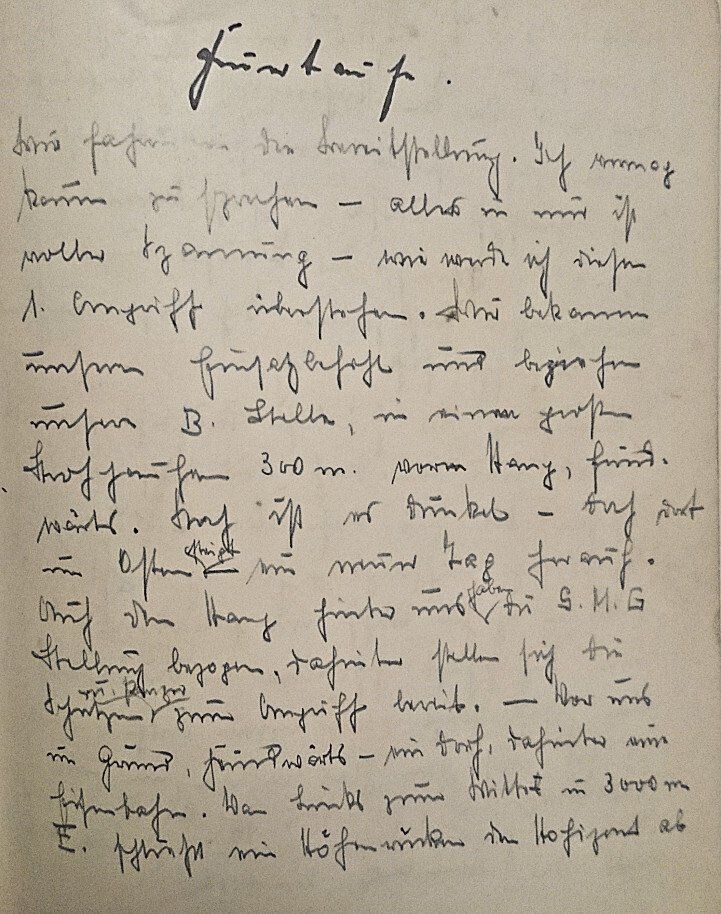 Feuertaufe.
Wir fahren in die Bereitstellung. Ich vermag
kaum zu sprechen – alles in mir ist
voller Spannung – wie werde ich diesen
1. Angriff überstehen. Wir bekamen
unseren Einsatzbefehl und beziehen
unsere B. Stelle, in einem großen
Strohhaufen 300 m. vorm Hang, feind-
wärts. Noch ist es dunkel – doch dort
im Osten steigt ein neuer Tag herauf.
Auf dem Hang hinter uns haben die S.M.G
Stellung bezogen, dahinter stellen sich die
Schützen u. Panzer zum Angriff bereit. – Vor uns
im Grund, feindwärts – ein Dorf, dahinter eine
Eisenbahn. Von Links zum Mitte in 3000 m
E. schließt ein Höhenrücken den Hohizont ab